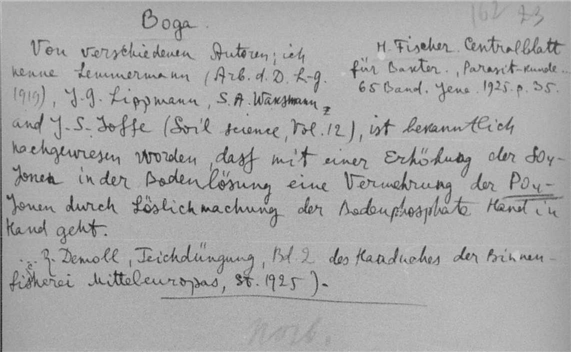 Boga
162 23
Von verschiedenen Autoren; ich
nenne Lemmermann (Arb. d. D. L-g.
1919), J. G. Lippmann, S. A. Waksmann
and J. S. Joffe (Soil science, Vol. 12), ist bekanntlich
nachgewiesen worden, dass mit einer Erhöhung der SO4-
Jonen in der Bodenlösung eine Vermehrung der PO4-
Jonen durch Löslichmachung der Bodenphosphate Hand in
Hand geht.
R. Demoll, Teichdüngung, Bd. 2 des Handuches der Binnen-
fisherei Mitteleuropas, St. 1925).
H. Fischer. Centralblatt
für Bakter., Parasit-kunde.
65 Band. Jena. 1925. p. 35.